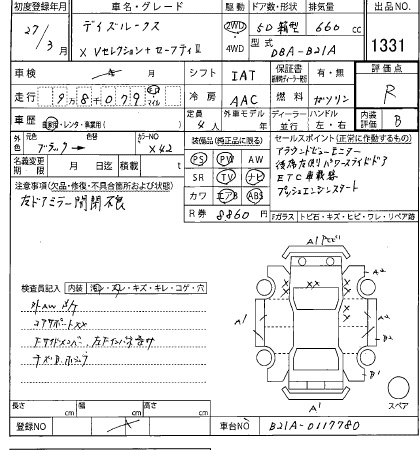 初度登録年月 車名・グレード 駆動 ドア数・形状 排気量 出品NO.
27/3月 デイズルークス 2WD 5D 箱型 660 cc
X Vセレクション+セーフティII 4WD 型式 DBA-B21A 1331
車検 シフト IAT 保証書 有・無 評価点
走行 9万8千079 マイル 冷房 AAC 燃料 ガソリン R
車歴 自家用・レンタ・事業用( ) 定員 4人 外車モデル 年 ディーラー・並行 ハンドル 左・右 内装評価 B
外色 元色 ブラック 色替 カラーNO X42 装備品(純正品に限る) セールスポイント(正常に作動するもの)
名義変更期限 月 日迄 積載 t PS PW AW アラウンドビューモニター
注意事項(欠品・修復・不具合箇所および状態) SR TV ナビ 後席左側パワースライドドア
左ドアミラー開閉不良 カワ エアB ABS ETC車載器
R券 8860円 プッシュエンジンスタート
Fガラス トビ石・キズ・ヒビ・ワレ・リペア跡
検査員記入 内装 汚・スレ・キズ・キレ・コゲ・穴
コアサポートXX
A1
A2
A1
A2
B2
B1
A1
スペア
長さ cm 幅 cm 高さ cm
登録NO 車台NO B21A-0117780